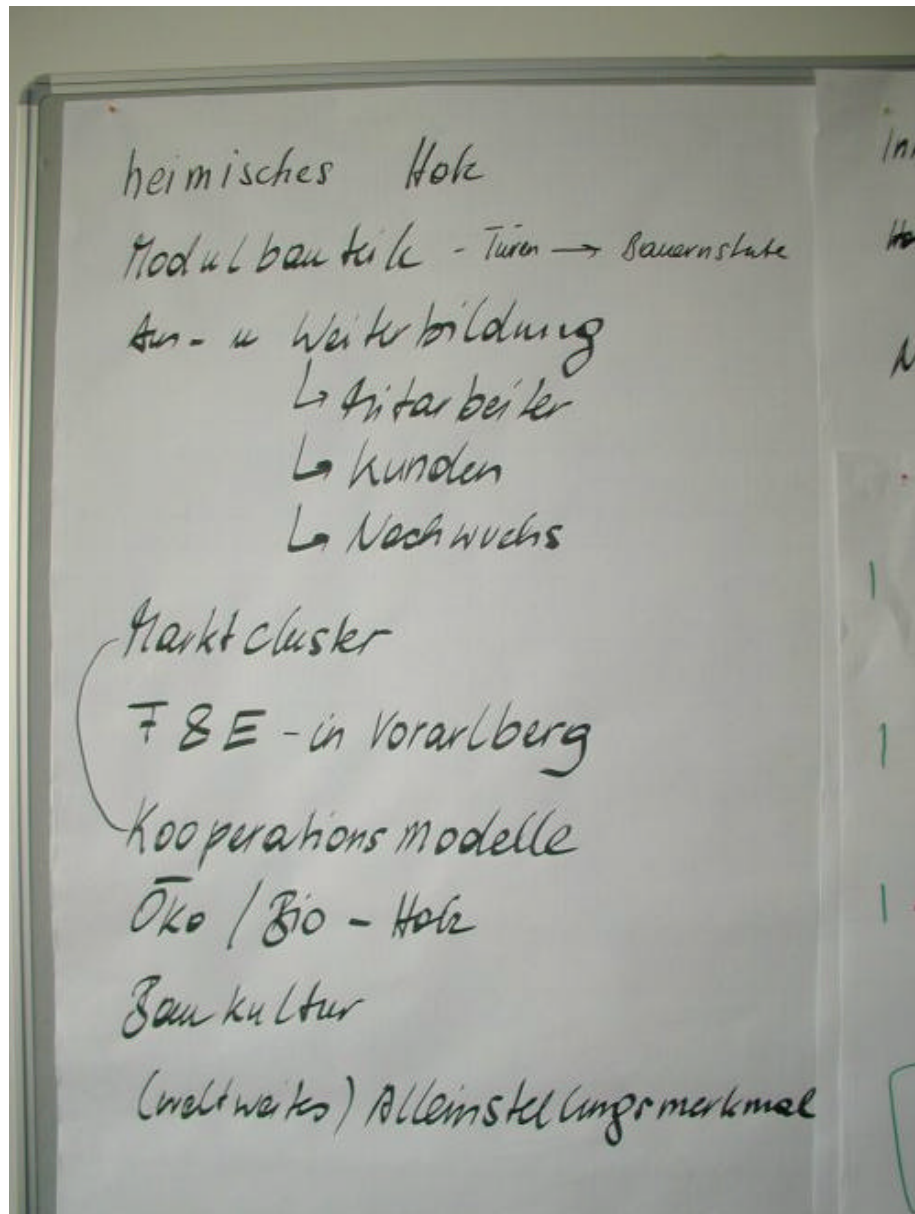 heimisches Holz
Modulbauteile - Türen → Bauernstube
Aus- u Weiterbildung
↳ Mitarbeiter
↳ Kunden
↳ Nachwuchs
Marktcluster
F&E - in Vorarlberg
Kooperationsmodelle
Öko / Bio - Holz
Baukultur
(weltweites) Alleinstellungsmerkmal